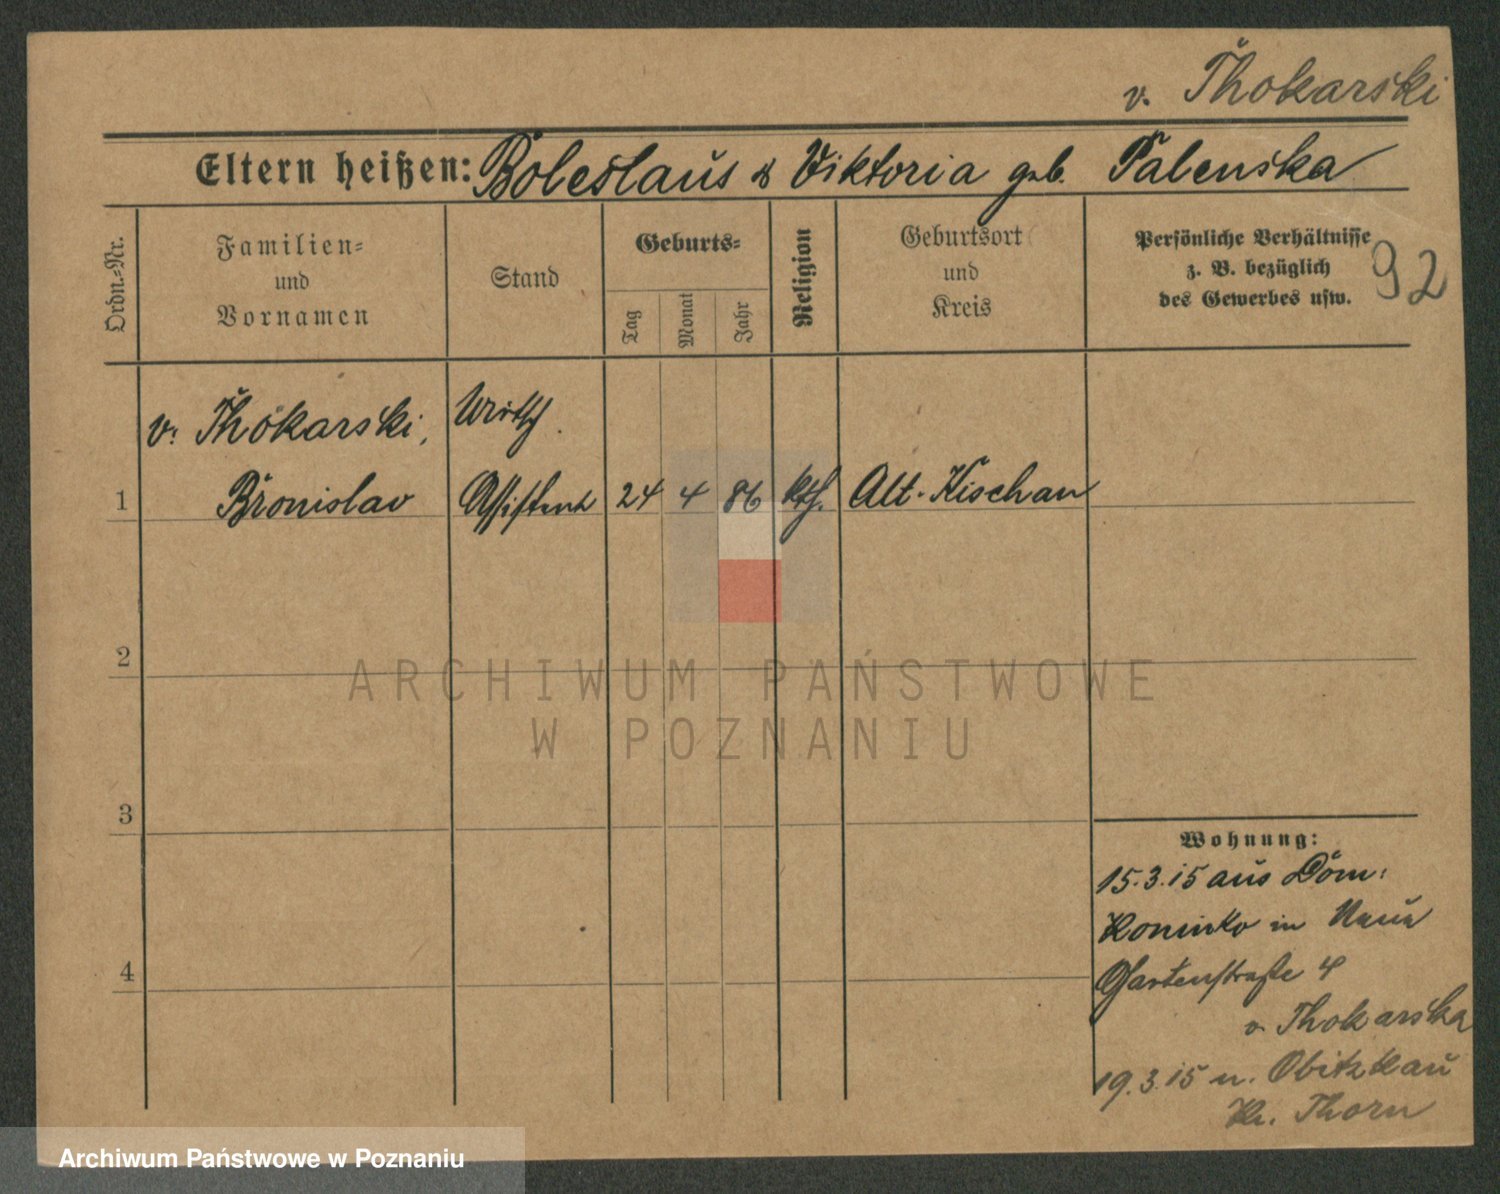 v. Thokarski
Eltern heißen: Boleslaus & Viktoria geb. Palenska
Ordn.-Nr.
Familien-
und
Vornamen
Stand
Geburts-
Tag
Monat
Jahr
Religion
Geburtsort
und
Kreis
Persönliche Verhältnisse
z. B. bezüglich
des Gewerbes usw.
92
v. Thokarski, Wirtsch.
1 Bronislav Assistent 24 4 86 kth. Alt-Kischau
2
3
4
Wohnung:
15.3.15 aus Dom.
in Neue
Gartenstraße 4
v. Thokarska
19.3.15 n. Obitzkau
Kr. Thorn
ARCHIWUM PAŃSTWOWE
W POZNANIU
Archiwum Państwowe w Poznaniu